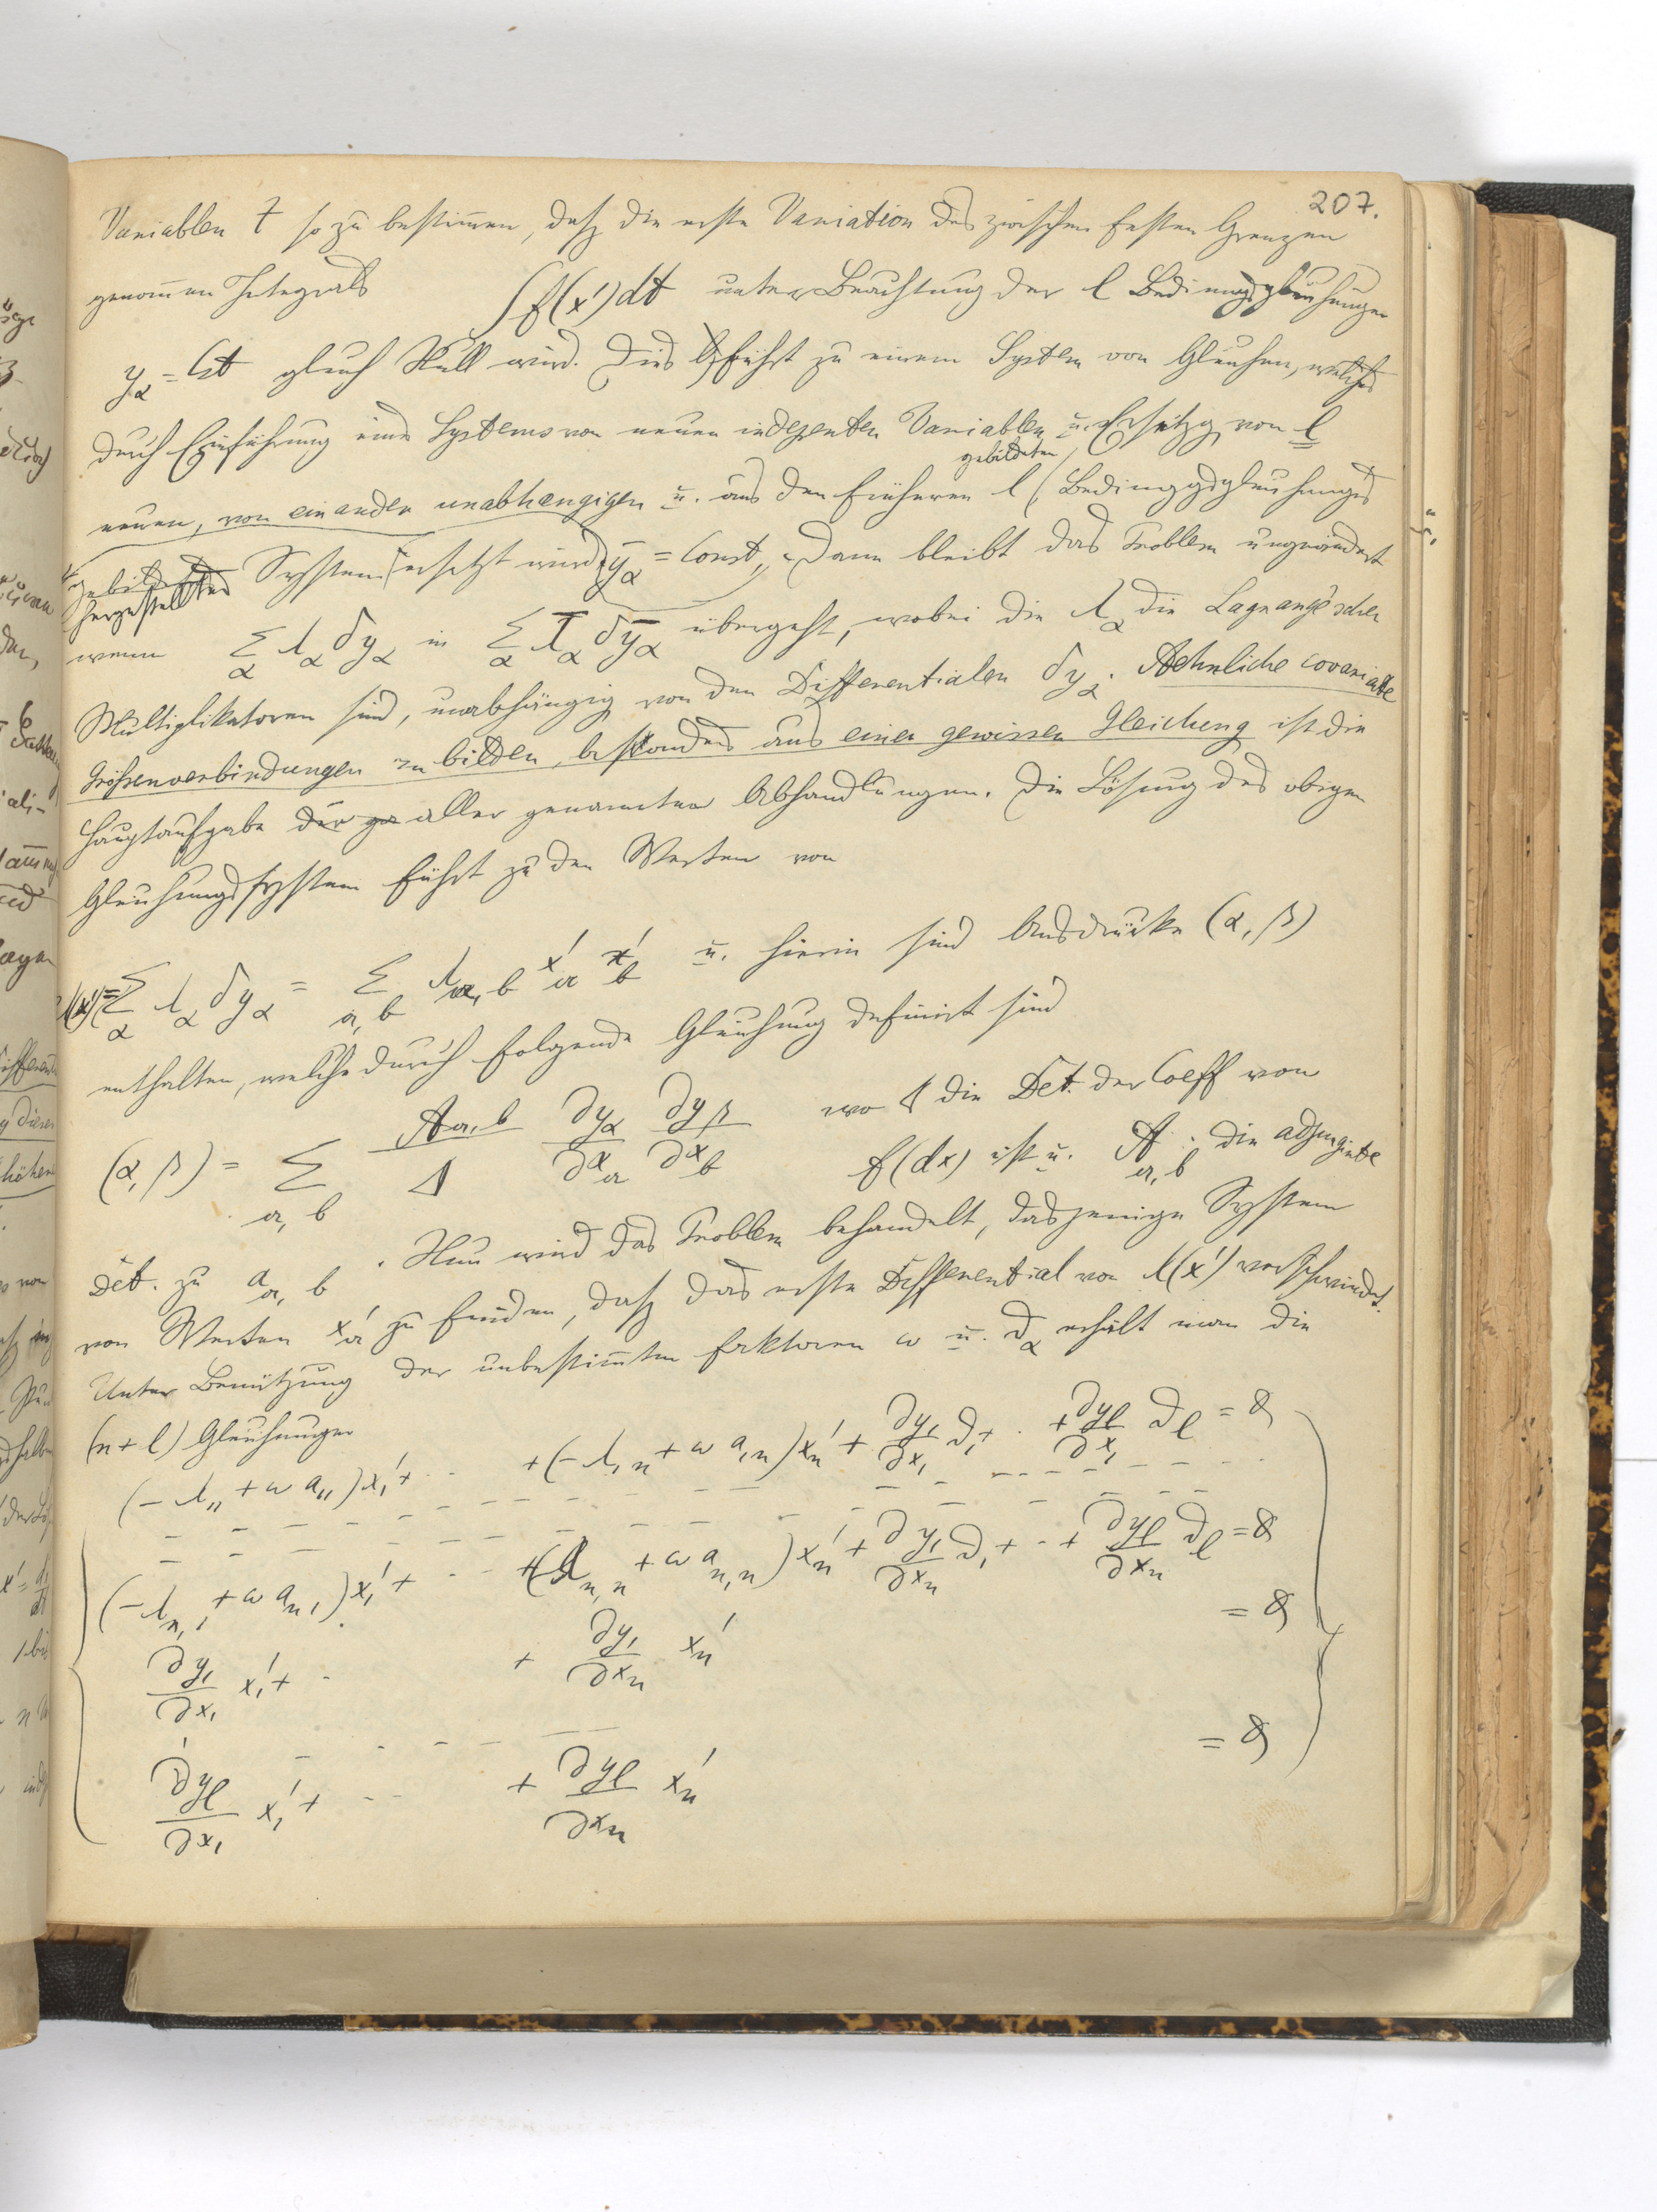 207.
Variablen t so zu bestim̄en, daß die erste Variation des zwischen festen Grenzen
genom̄enen Integrals ∫ f(x') dt unter Beachtung der l Bedingungsgleichungen
y_α = Cst gleich Null wird. Dies führt zu einem System von Gleichen, welches
durch Einführung eines Systems von neuen indepenten Variablen u. Ersetzg von l
gebildeten
neuen, von einander unabhængigen u. aus den früheren l Bedinggsgleichungen
hergestellten System ersetzt wird ȳ_α = Const, Dann bleibt das Problem ungeändert
wenn Σ_α λ_α δy_α in Σ_α λ̄_α δȳ_α übergeht, wobei die λ_α die Lagrange'schen
Multiplikatoren sind, unabhängig von den Differentialen δy_α. Aehnliche covariante
Größenverbindungen zu bilden, besonders aus einer gewissen Gleichung ist die
Hauptaufgabe aller genannten Abhandlungen. Die Lösung des obigen
Gleichungssystem führt zu den Werten von
Σ_α λ_α δy_α = Σ_{a, b} λ_{a, b} x'_a x'_b u. hierin sind Ausdrücke (α, β)
enthalten, welche durch folgende Gleichung definirt sind
(α, β) = Σ_{a, b} A_{a, b}/Δ ∂y_α/∂x_a ∂y_β/∂x_b wo Δ die Det. der Coeff von
f(dx) ist u. A_{a, b} die adjungirte
Det. zu a_{a, b}. Nun wird das Problem behandelt, dasjenige System
von Werten x'_a zu finden, daß das erste Differential von λ(x') verschwindet.
Unter Benützung der unbestim̄ten Faktoren ω u. ∂_α erhält man die
(n + l) Gleichungen
(- λ_{11} + ω a_{11}) x'_1 + · · + (- λ_{1n} + ω a_{1n}) x'_n + ∂y_1/∂x_1 ∂_1 + · + ∂y_l/∂x_1 ∂_l = 0
(- λ_{n,1} + ω a_{n1}) x'_1 + · · + (λ_{n,n} + ω a_{n,n}) x'_n + ∂y_1/∂x_n ∂_1 + · + ∂y_l/∂x_n ∂_l = 0
∂y_1/∂x_1 x'_1 + · + ∂y_1/∂x_n x'_n = 0
∂y_l/∂x_1 x'_1 + · · + ∂y_l/∂x_n x'_n = 0